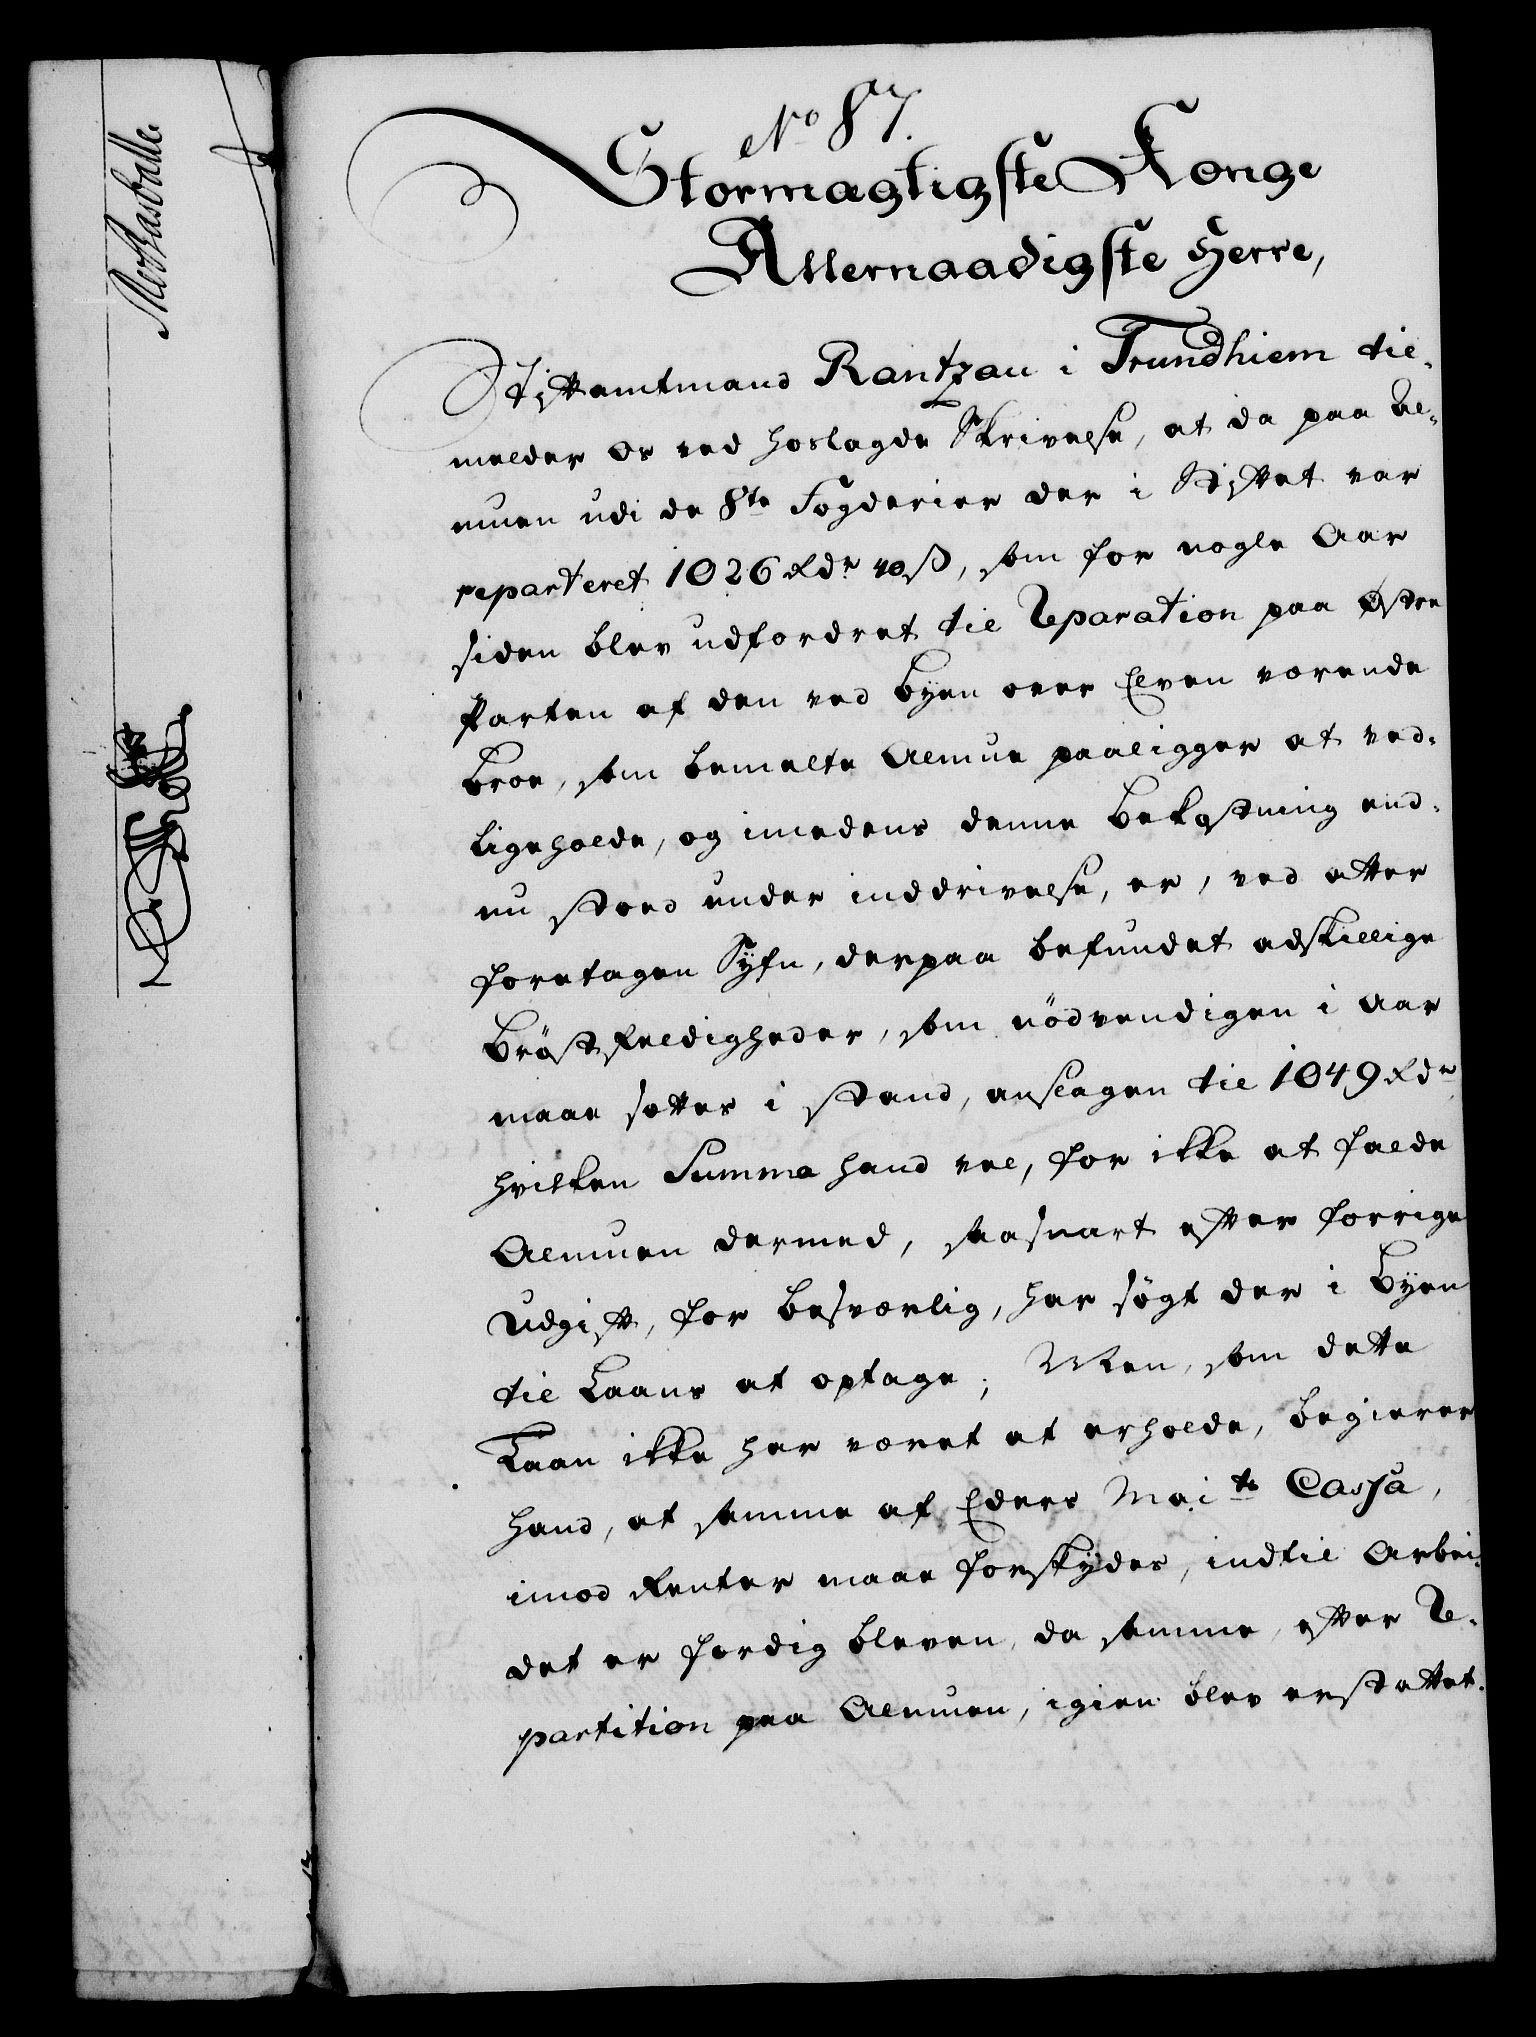 No 87.
Stormagtigste Konge
Allernaadigste Herre,
Stiftamtmand Rantzau i Trundhiem til-
melder os ved hoslagde Skrivelse, at da paa Al-
muen udi de 8te Fogderier der i Stiftet var
reparteret 1026 Rdr 40 ß, som for nogle Aar
siden blev udfordret til Reparation paa Østre
Parten af den ved Byen over Elven værende
Broe, som bemelte Almue paaligger at ved-
ligeholde, og imedens denne Bekostning end-
nu stoed under inddrivelse, er, ved atter
foretagen Syfn, derpaa befundet adskillige
Bröstfeldigheder, som nödvendigen i Aar
maae sættes i stand, anslagen til 1049 Rdr
hvilken Summa hand vel, for ikke at falde
Almuen dermed, saasnart efter forrige
Udgift, for besværlig, har sögt der i Byen
til Laans at optage; Men, som dette
Laan ikke har været at erholde, begierer
hand, at samme af Eders Maits Cassa,
imod Renter maae forskydes, indtil Arbei-
det er færdig bleven, da samme, efter Re-
partition paa Almuen, igien blev erstattet.